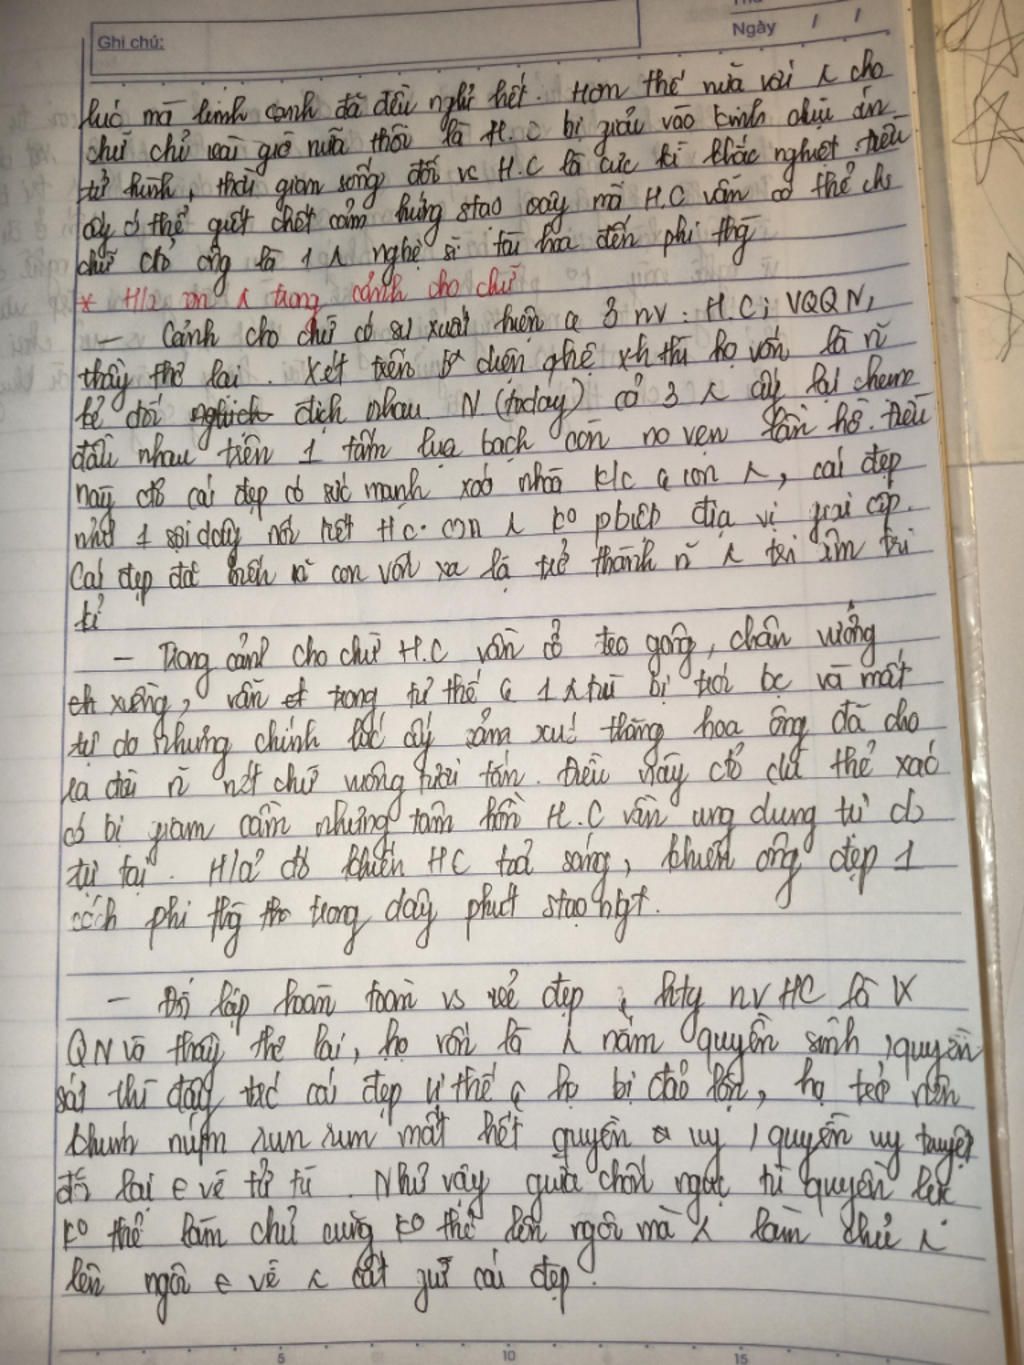 Ghi chú:
Ngày / /
lúc mà sinh cảnh đã đều nghỉ hết. Hơn thế nữa với λ cho
chữ chỉ vài giờ nữa thôi là H.C bị giải vào kinh chịu án
tử hình, thời gian sống đối vc H.C là cực kì khắc nghiệt. Điều
ấy có thể giết chết cảm hứng stạo vậy mà H.C vẫn có thể cho
chữ ctỏ ông là 1 λ nghệ sĩ tài hoa đến phi thg
* H/a con λ trong cảnh cho chữ
– Cảnh cho chữ có sự xuất hiện q 3 nv: H.C; VQQN,
thầy thơ lại. Xét trên bdiện qhệ xh thì họ vốn là n̄
kẻ đối nghịch địch nhau. N (today) cả 3 λ ấy lại chụm
đầu nhau trên 1 tấm lụa bạch còn no vẹn lần hồ. Điều
này ctỏ cái đẹp có sức mạnh xoá nhoà k/c q con λ, cái đẹp
như 1 sợi dây nối kết HC. con λ ko pbiệt địa vị giai cấp.
Cái đẹp đã biến n̄ con vốn xa lạ trở thành n̄ λ tri âm tri
kỉ
– Trong cảnh cho chữ H.C vẫn cổ đeo gông, chân vướng
xiềng, vẫn trong tư thế q 1 λ tù bị trói bc và mất
tự do nhưng chính lúc ấy cảm xúc thăng hoa ông đã cho
ra đời n̄ nét chữ vuông tươi tắn. Điều này ctỏ dù thể xác
có bị giam cầm nhưng tâm hồn H.C vẫn ung dung tự do
tự tại. H/a đó khiến HC toả sáng, khiến ông đẹp 1
cách phi thg trong giây phút stạo ngt.
– Đối lập hoàn toàn vs vẻ đẹp htg nv HC là V
QN và thầy thơ lại, họ vốn là λ nắm quyền sinh, quyền
sát thì đây trc cái đẹp vị thế q họ bị đảo lộn, họ trở nên
khúm núm run run mất hết quyền uy, quyền uy tuyệt
đối lại ϵ về tử tù. Như vậy giữa chốn ngục tù quyền lực
ko thể làm chủ cũng ko thể lên ngôi mà λ làm chủ
lên ngôi ϵ về λ cất giữ cái đẹp.
5 10 15